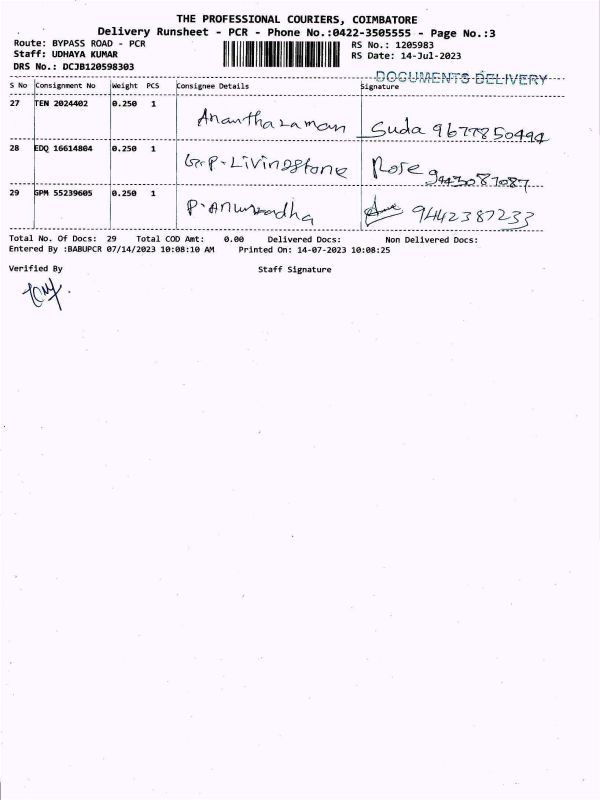 THE PROFESSIONAL COURIERS, COIMBATORE
Delivery Runsheet - PCR - Phone No.:0422-3505555 - Page No.:3
Route: BYPASS ROAD - PCR RS No.: 1205983
Staff: UDHAYA KUMAR RS Date: 14-Jul-2023
DRS No.: DCJB120598303
DOCUMENTS DELIVERY
S No Consignment No Weight PCS Consignee Details Signature
27 TEN 2024402 0.250 1 Anantharaman Suda 9677850494
28 EDQ 16614804 0.250 1 G.P. Livingstone Rose 9443087087
29 GPM 55239605 0.250 1 P. Anuradha 9442387233
Total No. Of Docs: 29 Total COD Amt: 0.00 Delivered Docs: Non Delivered Docs:
Entered By :BABUPCR 07/14/2023 10:08:10 AM Printed On: 14-07-2023 10:08:25
Verified By Staff Signature